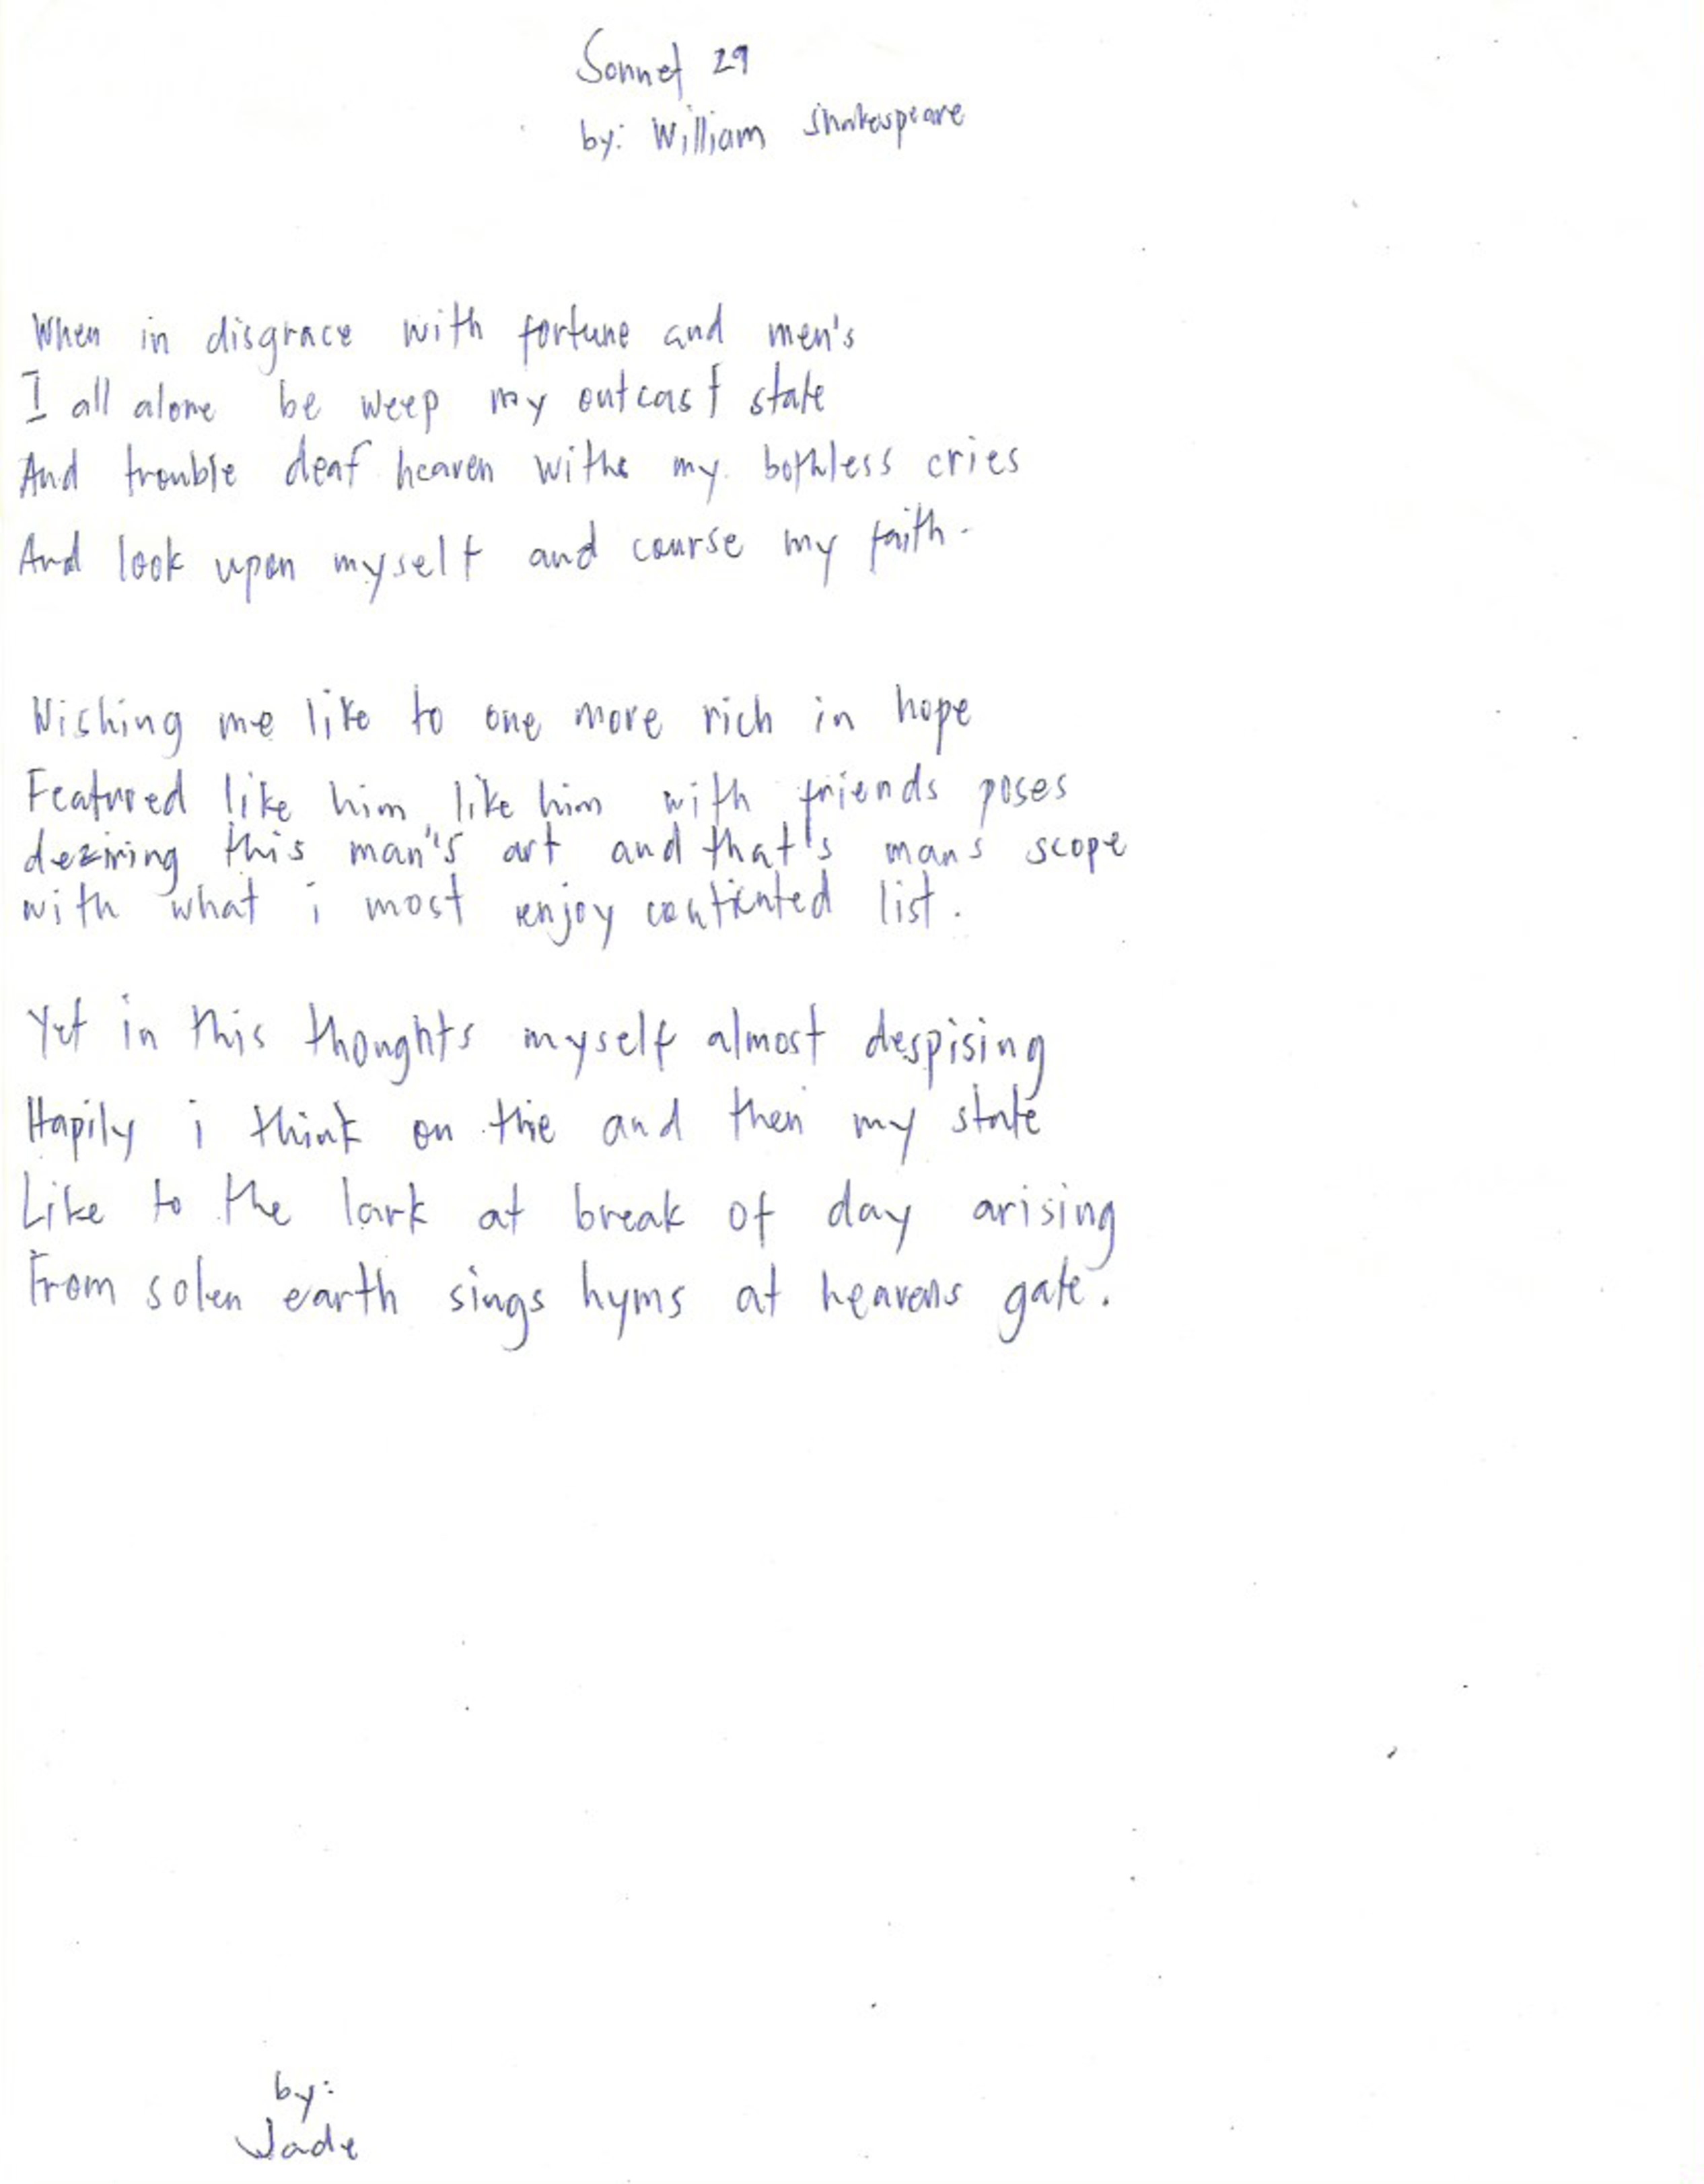 Sonnet 29
by: William Shakespeare
When in disgrace with fortune and men's
I all alone be weep my outcast state
And trouble deaf heaven withs my bothless cries
And look upon myself and course my faith.
Wishing me like to one more rich in hope
Featured like him, like him with friends poses
deziring this man's art and that's mans scope
with what i most enjoy contented list.
Yet in this thoughts myself almost despising
Hapily i think on thie and then my state
Like to the lark at break of day arising
From solen earth sings hyms at heavens gate.
by:
Jade